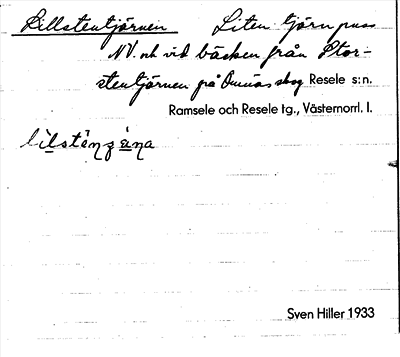 Lillstentjärnen Liten tjärn
NV. och vid bäcken från Stor-
stentjärnen på Omnäs skog Resele s:n.
Ramsele och Resele tg., Västernorrl. l.
Sven Hiller 1933